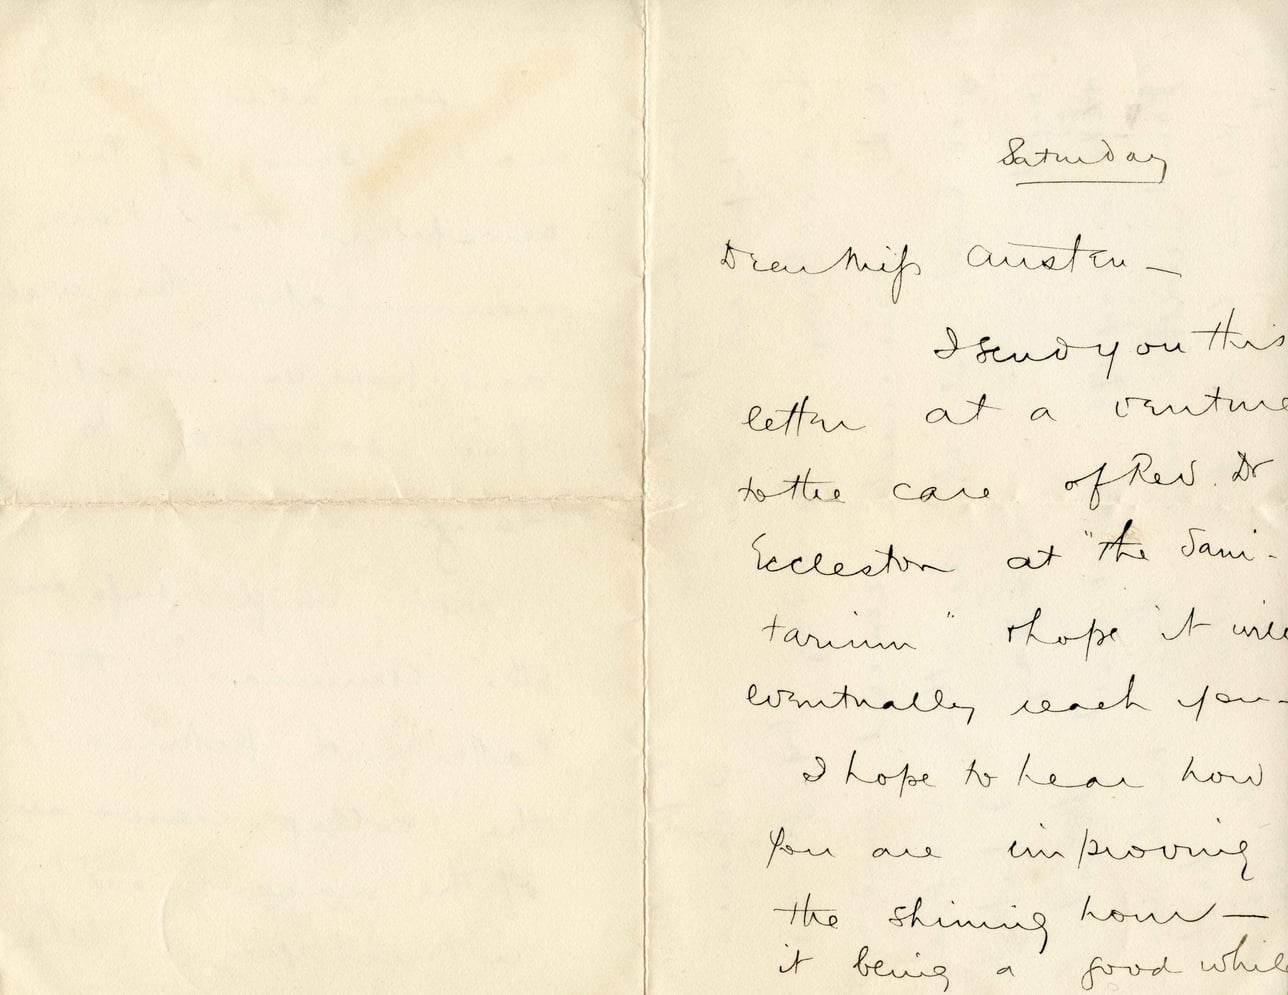 Saturday
Dear Miss Austen —
I send you this
letter at a venture
to the care of Rev. Dr
Eccleston at "the Sani-
tarium" & hope it will
eventually reach you -
I hope to hear how
you are improving
the shining hour —
it being a good while